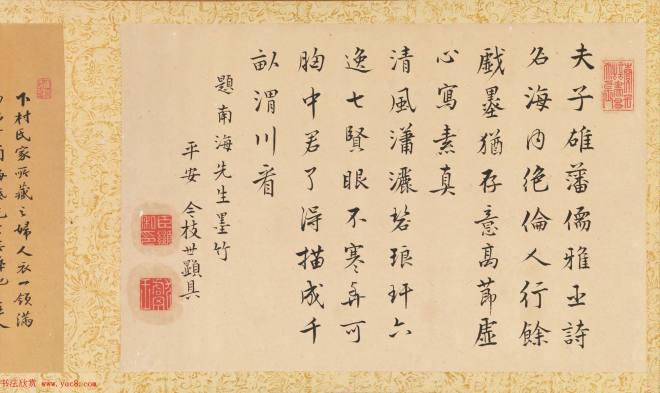 夫子雄藩儒雅丘詩
名海内絶倫人行餘
戲墨猶存意高節虛
心寫素真
清風瀟灑碧琅玕六
逸七賢眼不寒再可
胸中君了得描成千
畝渭川看
題南海先生墨竹
平安 令枝世顯具
下村氏家所藏之婦人衣一領滿
书法欣赏 www.yac8.com